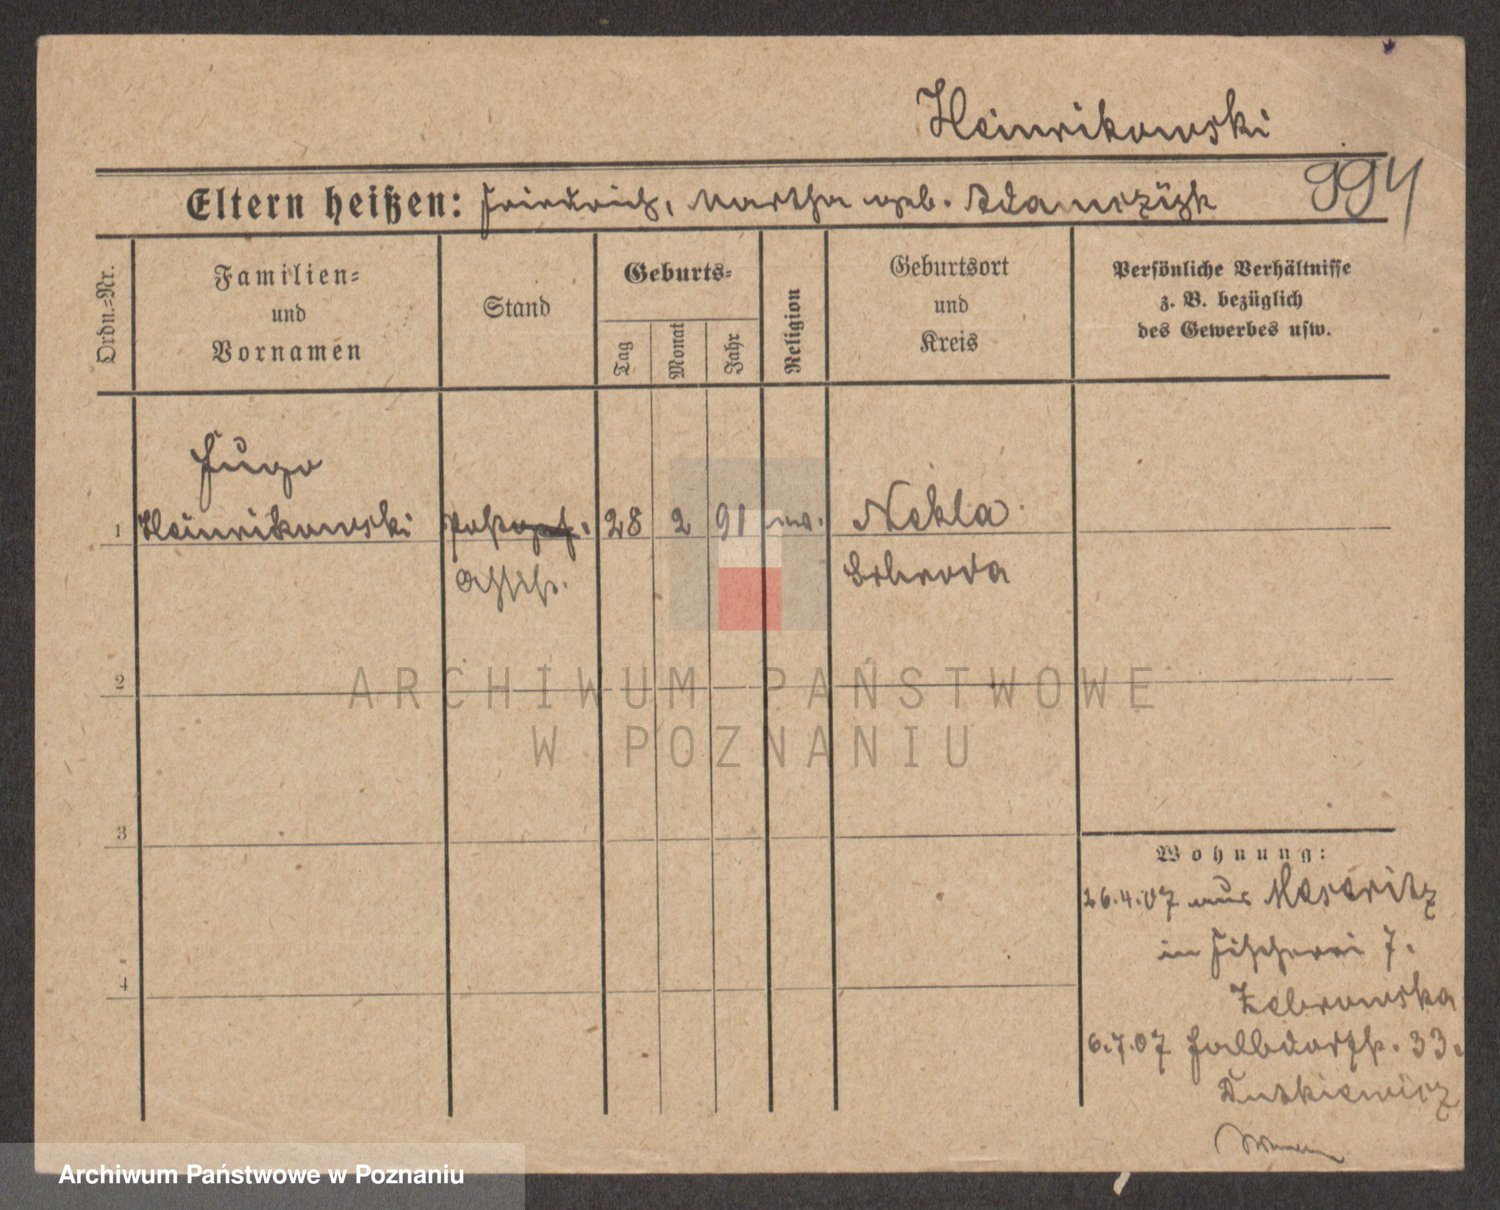 Heinrikowski
994
Eltern heißen: Friedrich, Martha geb. Adamczÿk
Ordn.=Nr.
Familien=
und
Vornamen
Stand
Geburts=
Tag
Monat
Jahr
Religion
Geburtsort
und
Kreis
Persönliche Verhältnisse
z. B. bezüglich
des Gewerbes usw.
Hugo
1 Heinrikowski 28 2 91 Nekla
Assist. Schroda
2
3
4
Wohnung:
26.4.07 aus Meseritz
in Fischerei 7.
Zebrowska
6.7.07 Halbdorfstr. 33.
Dutkiewicz
ARCHIWUM PAŃSTWOWE
W POZNANIU
Archiwum Państwowe w Poznaniu